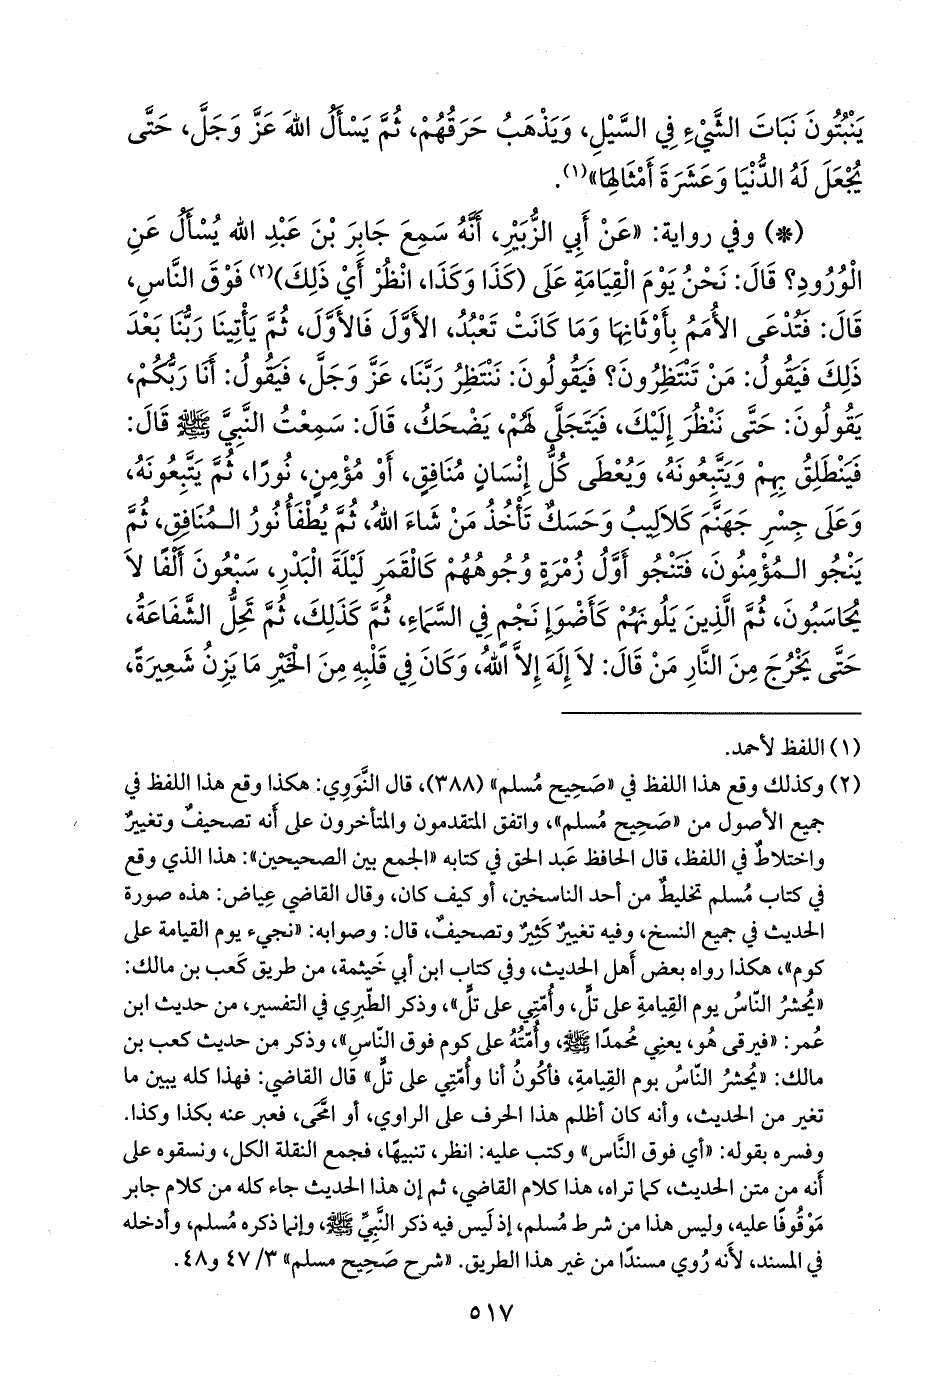 يَنْبُتُونَ نَبَاتَ الشَّيْءِ فِي السَّيْلِ، وَيَذْهَبُ حَرَقُهُمْ، ثُمَّ يَسْأَلُ اللهَ عَزَّ وَجَلَّ، حَتَّى
يُجْعَلَ لَهُ الدُّنْيَا وَعَشَرَةَ أَمْثَالِهَا»(١).
(*) وفي رواية: «عَنْ أَبِي الزُّبَيْرِ، أَنَّهُ سَمِعَ جَابِرَ بْنَ عَبْدِ الله يُسْأَلُ عَنِ
الْوُرُودِ؟ قَالَ: نَحْنُ يَوْمَ الْقِيَامَةِ عَلَى (كَذَا وَكَذَا، انْظُرْ أَيْ ذَلِكَ)(٢) فَوْقَ النَّاسِ،
قَالَ: فَتُدْعَى الأُمَمُ بِأَوْثَانِهَا وَمَا كَانَتْ تَعْبُدُ، الأَوَّلَ فَالأَوَّلَ، ثُمَّ يَأْتِينَا رَبُّنَا بَعْدَ
ذَلِكَ فَيَقُولُ: مَنْ تَنْتَظِرُونَ؟ فَيَقُولُونَ: نَنْتَظِرُ رَبَّنَا، عَزَّ وَجَلَّ، فَيَقُولُ: أَنَا رَبُّكُمْ،
يَقُولُونَ: حَتَّى نَنْظُرَ إِلَيْكَ، فَيَتَجَلَّى لَهُمْ، يَضْحَكُ، قَالَ: سَمِعْتُ النَّبِيَّ ﷺ قَالَ:
فَيَنْطَلِقُ بِهِمْ وَيَتَّبِعُونَهُ، وَيُعْطَى كُلُّ إِنْسَانٍ مُنَافِقٍ، أَوْ مُؤْمِنٍ، نُورًا، ثُمَّ يَتَّبِعُونَهُ،
وَعَلَى جِسْرِ جَهَنَّمَ كَلاَلِيبُ وَحَسَكٌ تَأْخُذُ مَنْ شَاءَ اللهُ، ثُمَّ يُطْفَأُ نُورُ الـمُنَافِقِ، ثُمَّ
يَنْجُو الـمُؤْمِنُونَ، فَتَنْجُو أَوَّلُ زُمْرَةٍ وُجُوهُهُمْ كَالْقَمَرِ لَيْلَةَ الْبَدْرِ، سَبْعُونَ أَلْفًا لاَ
يُحَاسَبُونَ، ثُمَّ الَّذِينَ يَلُونَهُمْ كَأَضْوَإِ نَجْمٍ فِي السَّمَاءِ، ثُمَّ كَذَلِكَ، ثُمَّ تَحِلُّ الشَّفَاعَةُ،
حَتَّى يَخْرُجَ مِنَ النَّارِ مَنْ قَالَ: لاَ إِلَهَ إِلاَّ اللهُ، وَكَانَ فِي قَلْبِهِ مِنَ الْخَيْرِ مَا يَزِنُ شَعِيرَةً،
(١) اللفظ لأحمد.
(٢) وكذلك وقع هذا اللفظ في «صَحِيح مُسلم» (٣٨٨)، قال النَّوَوِي: هكذا وقع هذا اللفظ في
جميع الأصول من «صَحِيح مُسلم»، واتفق المتقدمون والمتأخرون على أنه تصحيفٌ وتغييرٌ
واختلاطٌ في اللفظ، قال الحافظ عَبد الحق في كتابه «الجمع بين الصحيحين»: هذا الذي وقع
في كتاب مُسلم تخليطٌ من أحد الناسخين، أو كيف كان، وقال القاضي عِياض: هذه صورة
الحديث في جميع النسخ، وفيه تغييرٌ كَثِيرٌ وتصحيفٌ، قال: وصوابه: «نجيء يوم القيامة على
كوم»، هكذا رواه بعض أَهل الحديث، وفي كتاب ابن أبي خَيثمة، من طريق كَعب بن مالك:
«يُحشرُ النّاسُ يوم القِيامةِ على تلٍّ، وأُمّتِي على تلٍّ»، وذكر الطَّبري في التفسير، من حديث ابن
عُمر: «فيرقى هُو، يعنِي مُحمدًا ﷺ، وأُمّتُهُ على كوم فوق النّاسِ»، وذكر من حديث كعب بن
مالك: «يُحشرُ النّاسُ يوم القِيامةِ، فأكُونُ أنا وأُمّتِي على تلٍّ» قال القاضي: فهذا كله يبين ما
تغير من الحديث، وأنه كان أظلم هذا الحرف على الراوي، أو امَّحَى، فعبر عنه بكذا وكذا.
وفسره بقوله: «أي فوق النَّاس» وكتب عليه: انظر، تنبيهًا، فجمع النقلة الكل، ونسقوه على
أَنه من متن الحديث، كما تراه، هذا كلام القاضي، ثم إن هذا الحديث جاء كله من كلام جابر
مَوْقُوفًا عليه، وليس هذا من شرط مُسلم، إذ لَيس فيه ذكر النَّبيِّ ﷺ، وإنما ذكره مُسلم، وأدخله
في المسند، لأنه رُوي مسندًا من غير هذا الطريق. «شرح صَحِيح مسلم» ٣/ ٤٧ و٤٨.
٥١٧